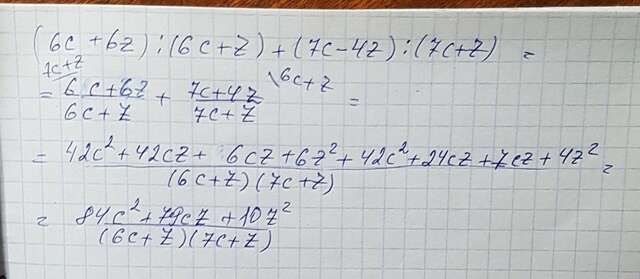 (6c + 6z) : (6c + z) + (7c - 4z) : (7c + z) =
= (6c + 6z)/(6c + z) 7c+z + (7c + 4z)/(7c + z) \6c+z =
= (42c² + 42cz + 6cz + 6z² + 42c² + 24cz + 7cz + 4z²)/((6c + z)(7c + z)) =
= (84c² + 79cz + 10z²)/((6c + z)(7c + z))